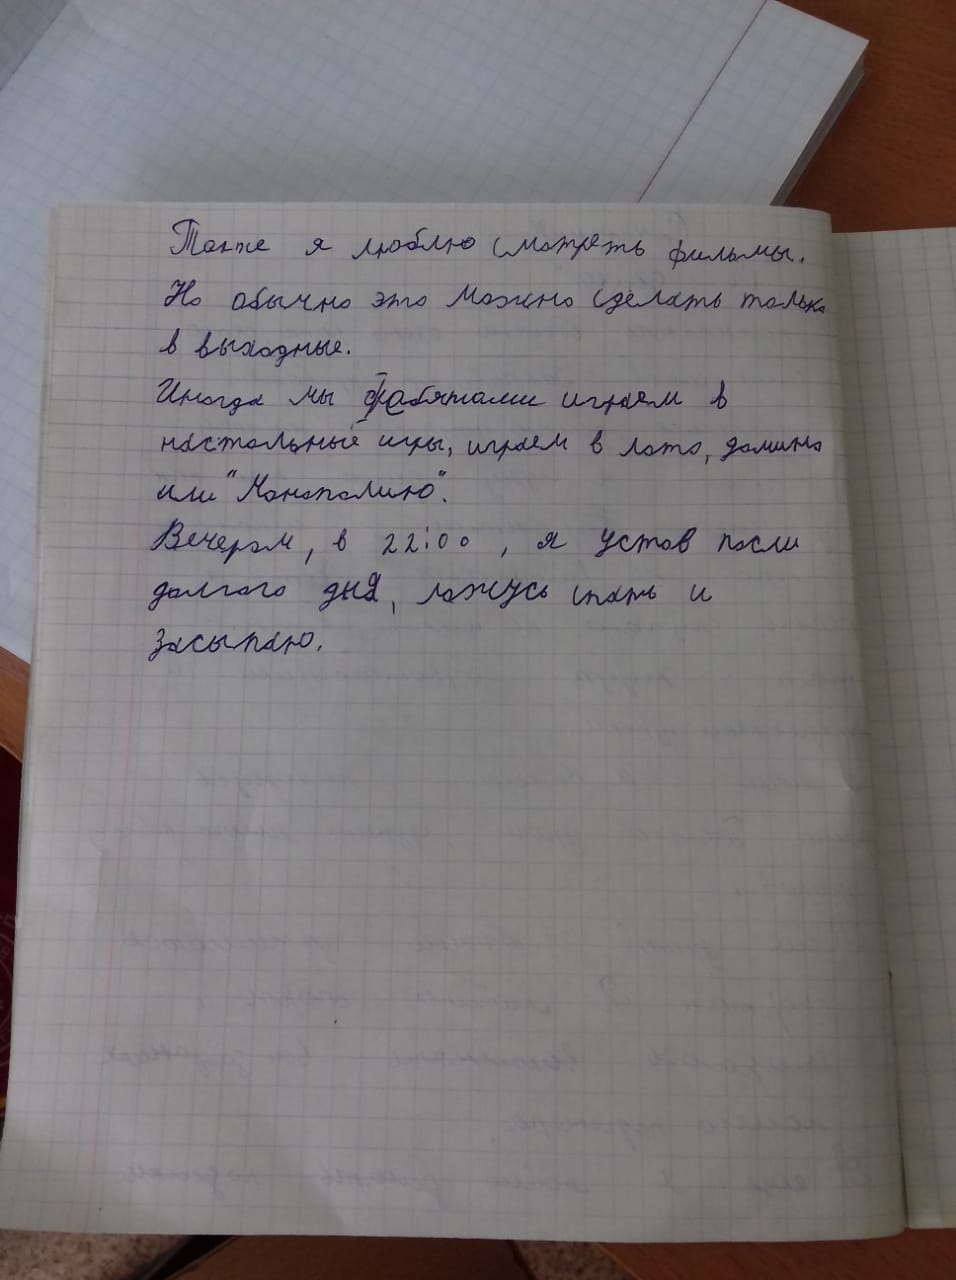 Также я люблю смотреть фильмы.
Но обычно это можно сделать только
в выходные.
Иногда мы с рабятами играем в
настольные игры, играем в лото, домино
или "Манаполию".
Вечером, в 22:00, я устав посли
долгого дня, ложусь спать и
засыпаю.